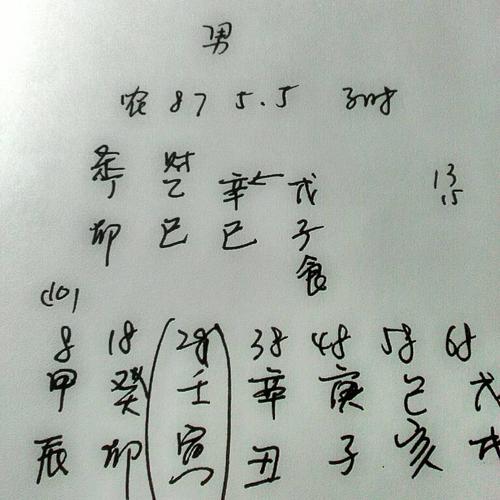 男
农 87 5.5 子时
杀 财
丁 乙 辛← 戊 13
卯 巳 巳 子 15
食
(10)
8 18 28 38 48 58 68
甲 癸 壬 辛 庚 己 戊
辰 卯 寅 丑 子 亥 戌